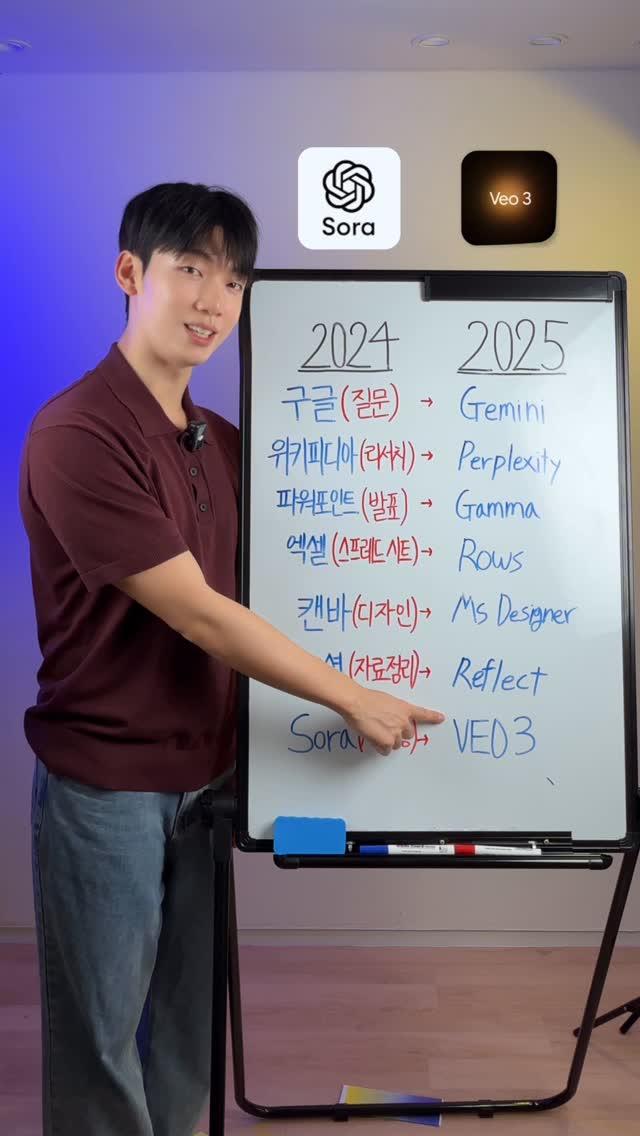 Sora
Veo 3
2024 2025
구글(질문) → Gemini
위키피디아(리서치) → Perplexity
파워포인트(발표) → Gamma
엑셀(스프레드시트) → Rows
캔바(디자인) → Ms Designer
(자료정리) → Reflect
Sora → VEO3